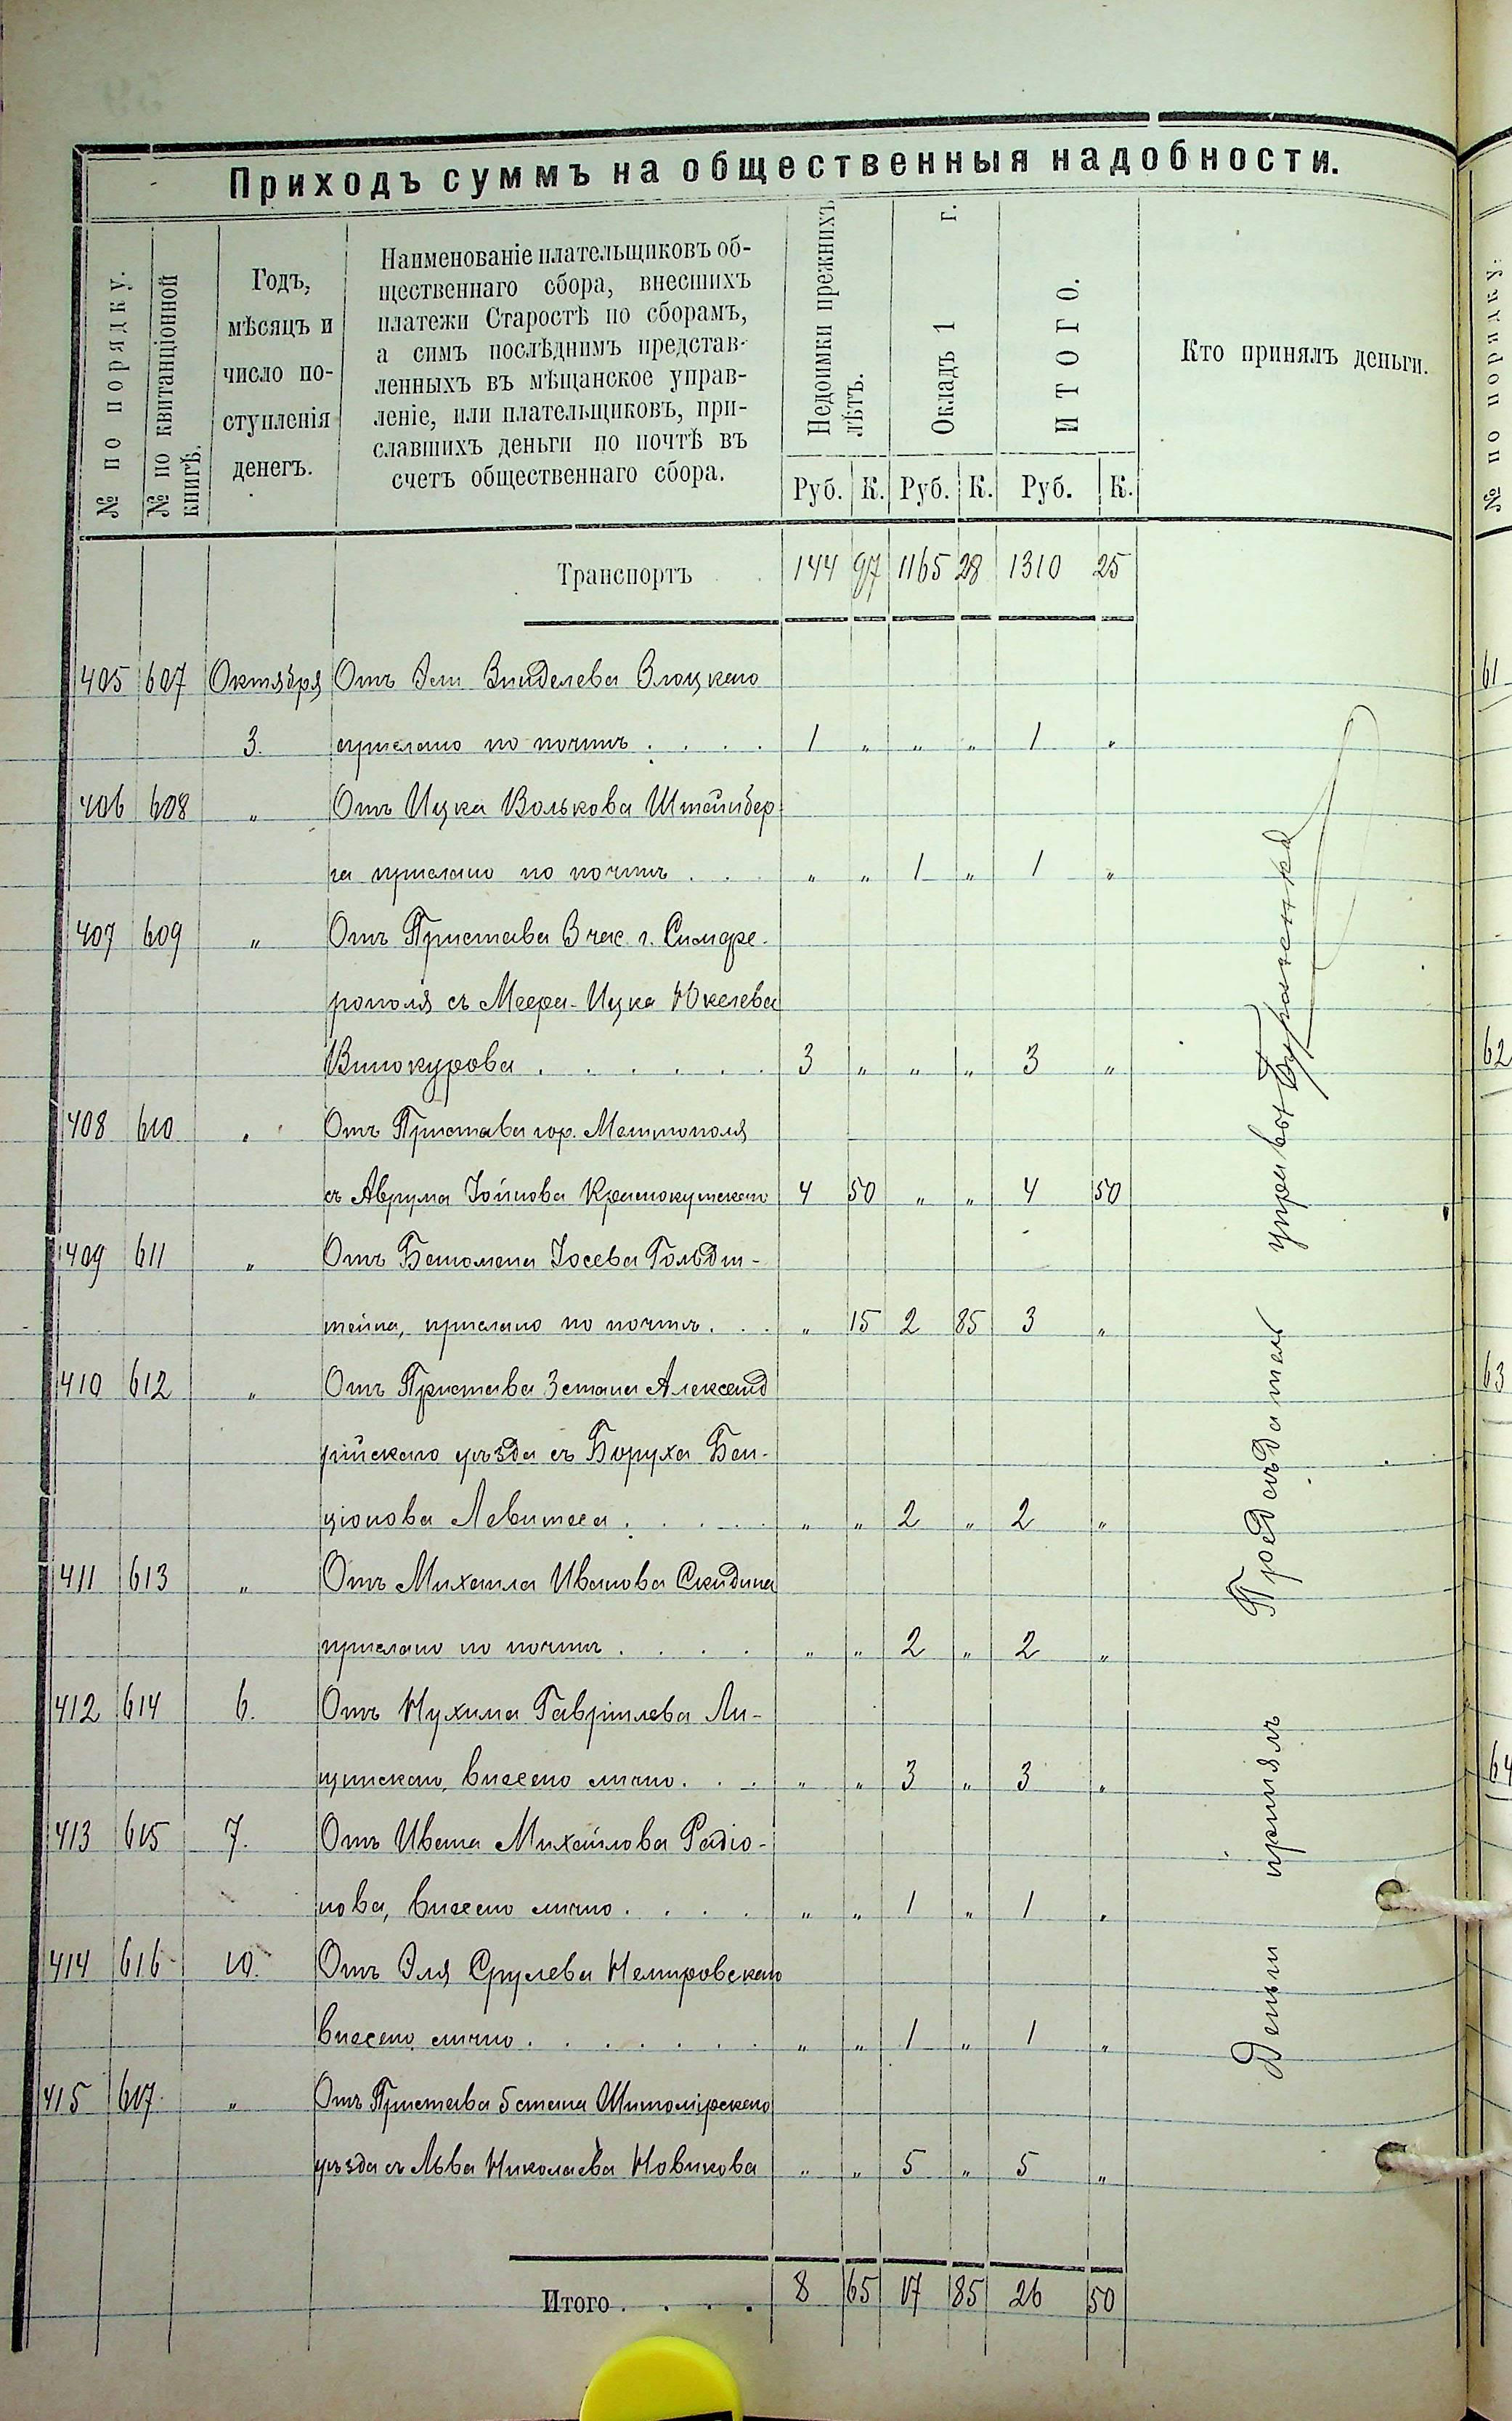 Приходъ суммъ на общественныя надобности.
№ по порядку.
№ по квитанціонной книгѣ.
Годъ, мѣсяцъ и число поступленія денегъ.
Наименованіе плательщиковъ об-
щественнаго сбора, внесшихъ
платежи Старостѣ по сборамъ,
а симъ послѣднимъ представ-
ленныхъ въ мѣщанское управ-
леніе, или плательщиковъ, при-
славшихъ деньги по почтѣ въ
счетъ общественнаго сбора.
Недоимки прежнихъ лѣтъ.
Окладъ 1 г.
ИТОГО.
Кто принялъ деньги.
Руб. К. Руб. К. Руб. К.
Транспортъ 144 97 1165 28 1310 25
405 607 Октября Отъ Эли
3. прислано по почтѣ . . . . 1 „ „ „ 1 „
406 608 „ Отъ Ицка Волькова Штейнбер-
га прислано по почтѣ . . . „ „ 1 „ 1 „
407 609 „ Отъ Пристава 3 час. г. Симфе-
рополя съ Меера-Ицка Юкелева
Винокурова . . . . . . 3 „ „ „ 3 „
408 610 „ Отъ Пристава гор. Мелитополя
съ Аврума Іойнова Краснокутскаго 4 50 „ „ 4 50
409 611 „ Отъ Іосева Гольдш-
тейна, прислано по почтѣ . . . „ 15 2 85 3 „
410 612 „ Отъ Пристава 3 стана Александ
рійскаго уѣзда съ Боруха Бен-
ціонова Левитеса . . . . . „ „ 2 „ 2 „
411 613 „ Отъ Михаила Иванова Скидина
прислано по почтѣ . . . . „ „ 2 „ 2 „
412 614 6. Отъ Нухима Гавріилева Ли-
щинскаго, внесено лично . . . „ „ 3 „ 3 „
413 615 7. Отъ Ивана Михайлова Радіо-
нова, внесено лично . . . . „ „ 1 „ 1 „
414 616 10. Отъ Эля Срулева Немировскаго
внесено лично . . . . . . . „ „ 1 „ 1 „
415 617 „ Отъ Пристава 5 стана Житомірскаго
уѣзда съ Льва Николаева Новикова „ „ 5 „ 5 „
Итого . . . . 8 65 17 85 26 50
Деньги принялъ Предсѣдатель управы
№ по порядку.
61
62
63
64